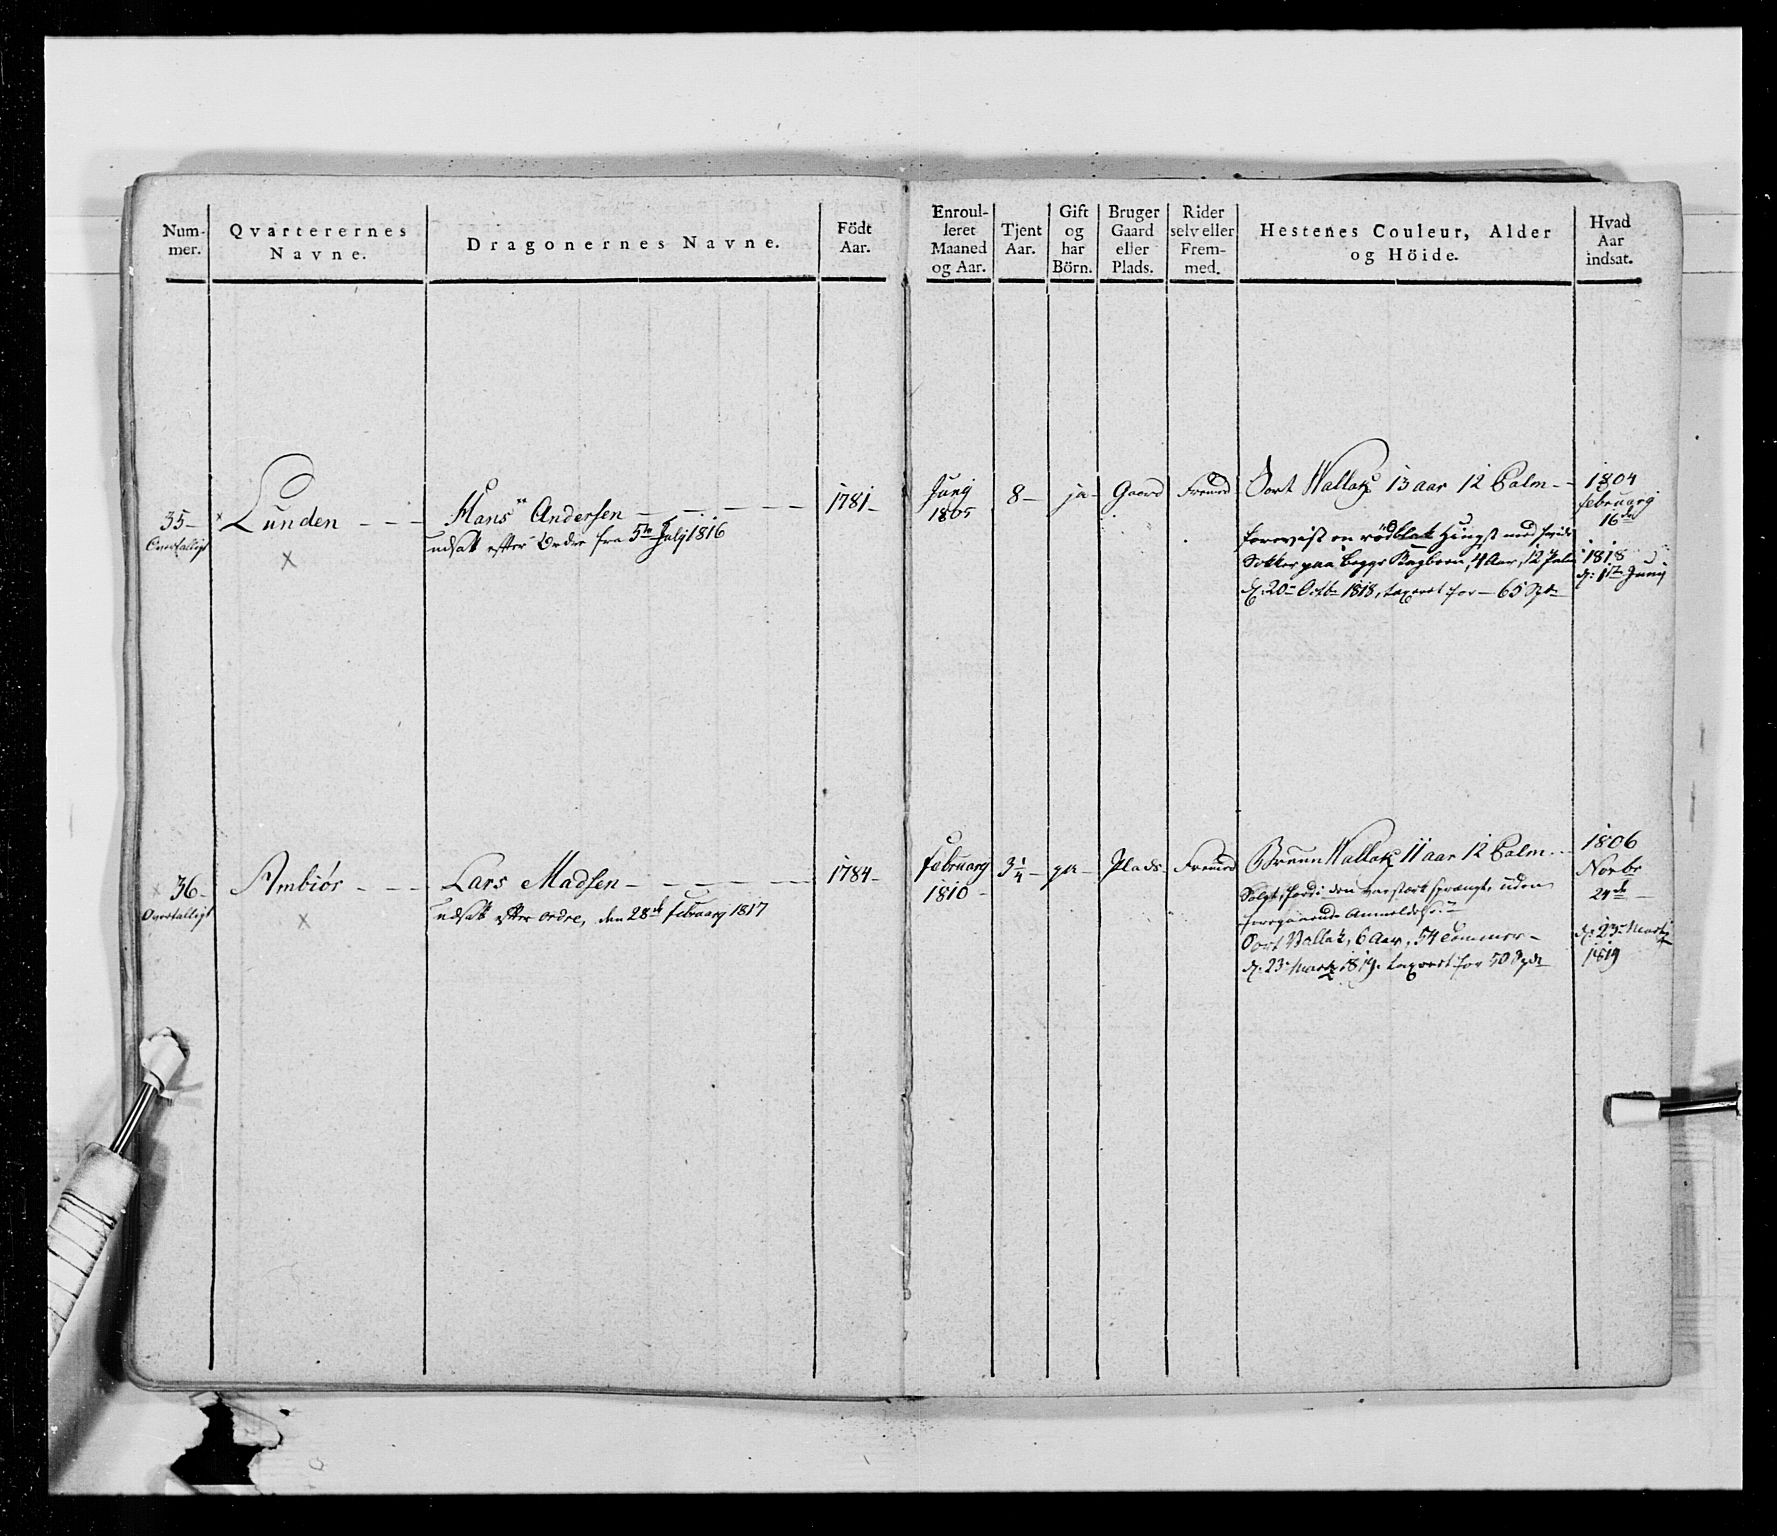 Num-
mer.
Qvarterernes
Navne.
Dragonernes Navne.
Födt
Aar.
Enroul-
leret
Maaned
og Aar.
Tjent
Aar.
Gift
og
har
Börn.
Bruger
Gaard
eller
Plads.
Rider
selv eller
Frem-
med.
Hestenes Couleur, Alder
og Höide.
Hvad
Aar
indsat.
35-
Overtalligt
Lunden
×
Hans Andersen
udsat efter Ordre fra 5te July 1816
1781-
Junij
1805
8-
ja-
Gaard
Fremed
Sort Wallak 13 aar 12 Palm
forevist en rödblak Hingst med hvide
Sokker paa begge Bagbeen, 4 Aar, 12 Palm
d. 20de Octbr 1818, taxeret for - 65 Spd
1804
februarij
16de
1818
d: 1ste Junij
× 36-
Overtalligt
Ambiör
×
Lars Madsen
udsat efter ordre, den 28de februarij 1817
1784-
Februarij
1810-
3 1/4-
ja-
Plads
Fremed
Bruun Wallak 11 aar 12 Palm
Solgt, fordi den var stærk sprængt, uden
foregaaende Anmeldelse
Sort Vallak, 6 Aar, 54 Tommer
d. 23de Martz 1819. taxeert for 50 Spd
1806
Novbr
24de
d. 23de Martz
1819